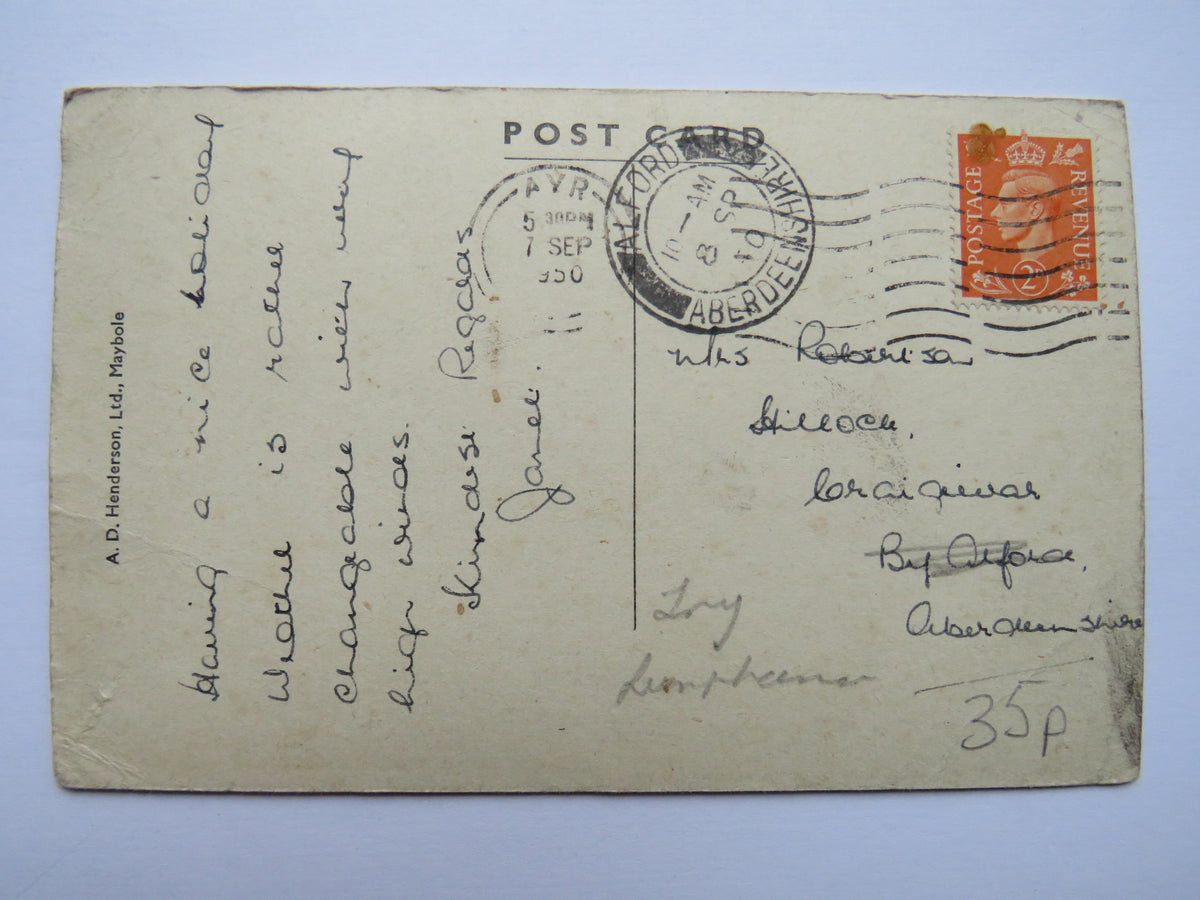 POST CARD
A. D. Henderson, Ltd., Maybole
Having a nice holiday
Weather is rather
changeable with very
high winds.
Kindest Regards
Janet.
AYR
5 30PM
7 SEP
950
ALFORD
ABERDEENSHIRE
10 - AM
8 SP
50
POSTAGE
REVENUE
2D
Mrs Robertson
Hillock,
Craigievar
By Alford,
Aberdeenshire
Lumphanan
35p